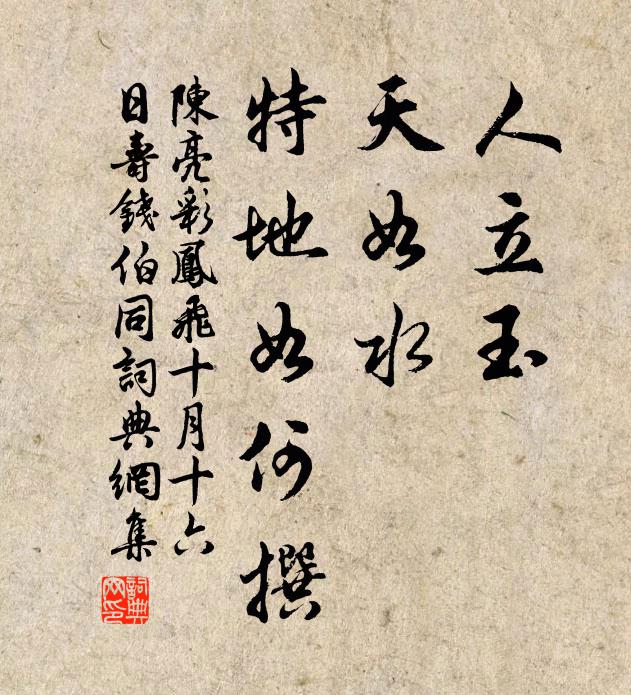 人立玉
天如水
特地如何撰
陳亮彩鳳飛十月十六
日壽錢伯同詞典網集
詞典
网印